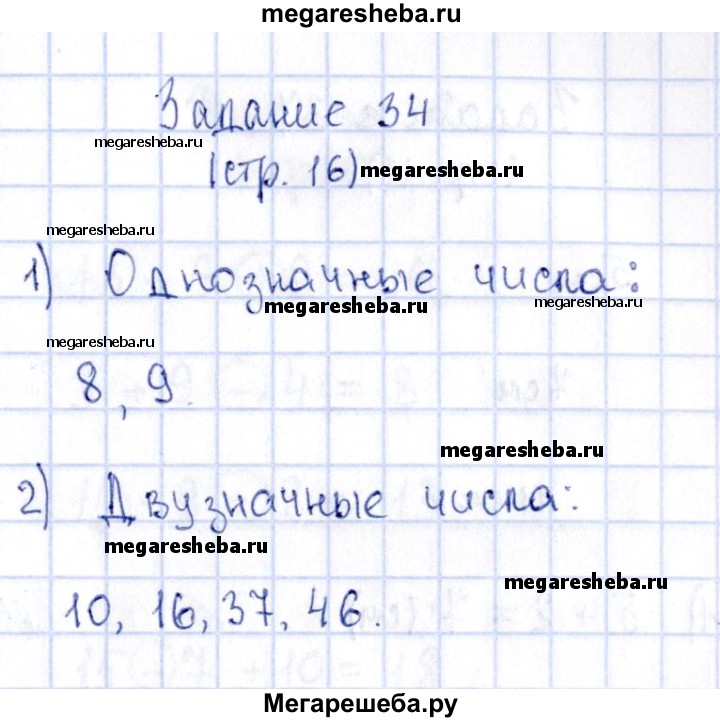 megaresheba.ru
Задание 34
megaresheba.ru
(стр. 16) megaresheba.ru
megaresheba.ru
1) Однозначные числа:
megaresheba.ru megaresheba.ru
megaresheba.ru
8, 9.
megaresheba.ru
2) Двузначные числа:
megaresheba.ru
megaresheba.ru
10, 16, 37, 46.
Мегарешеба.ру